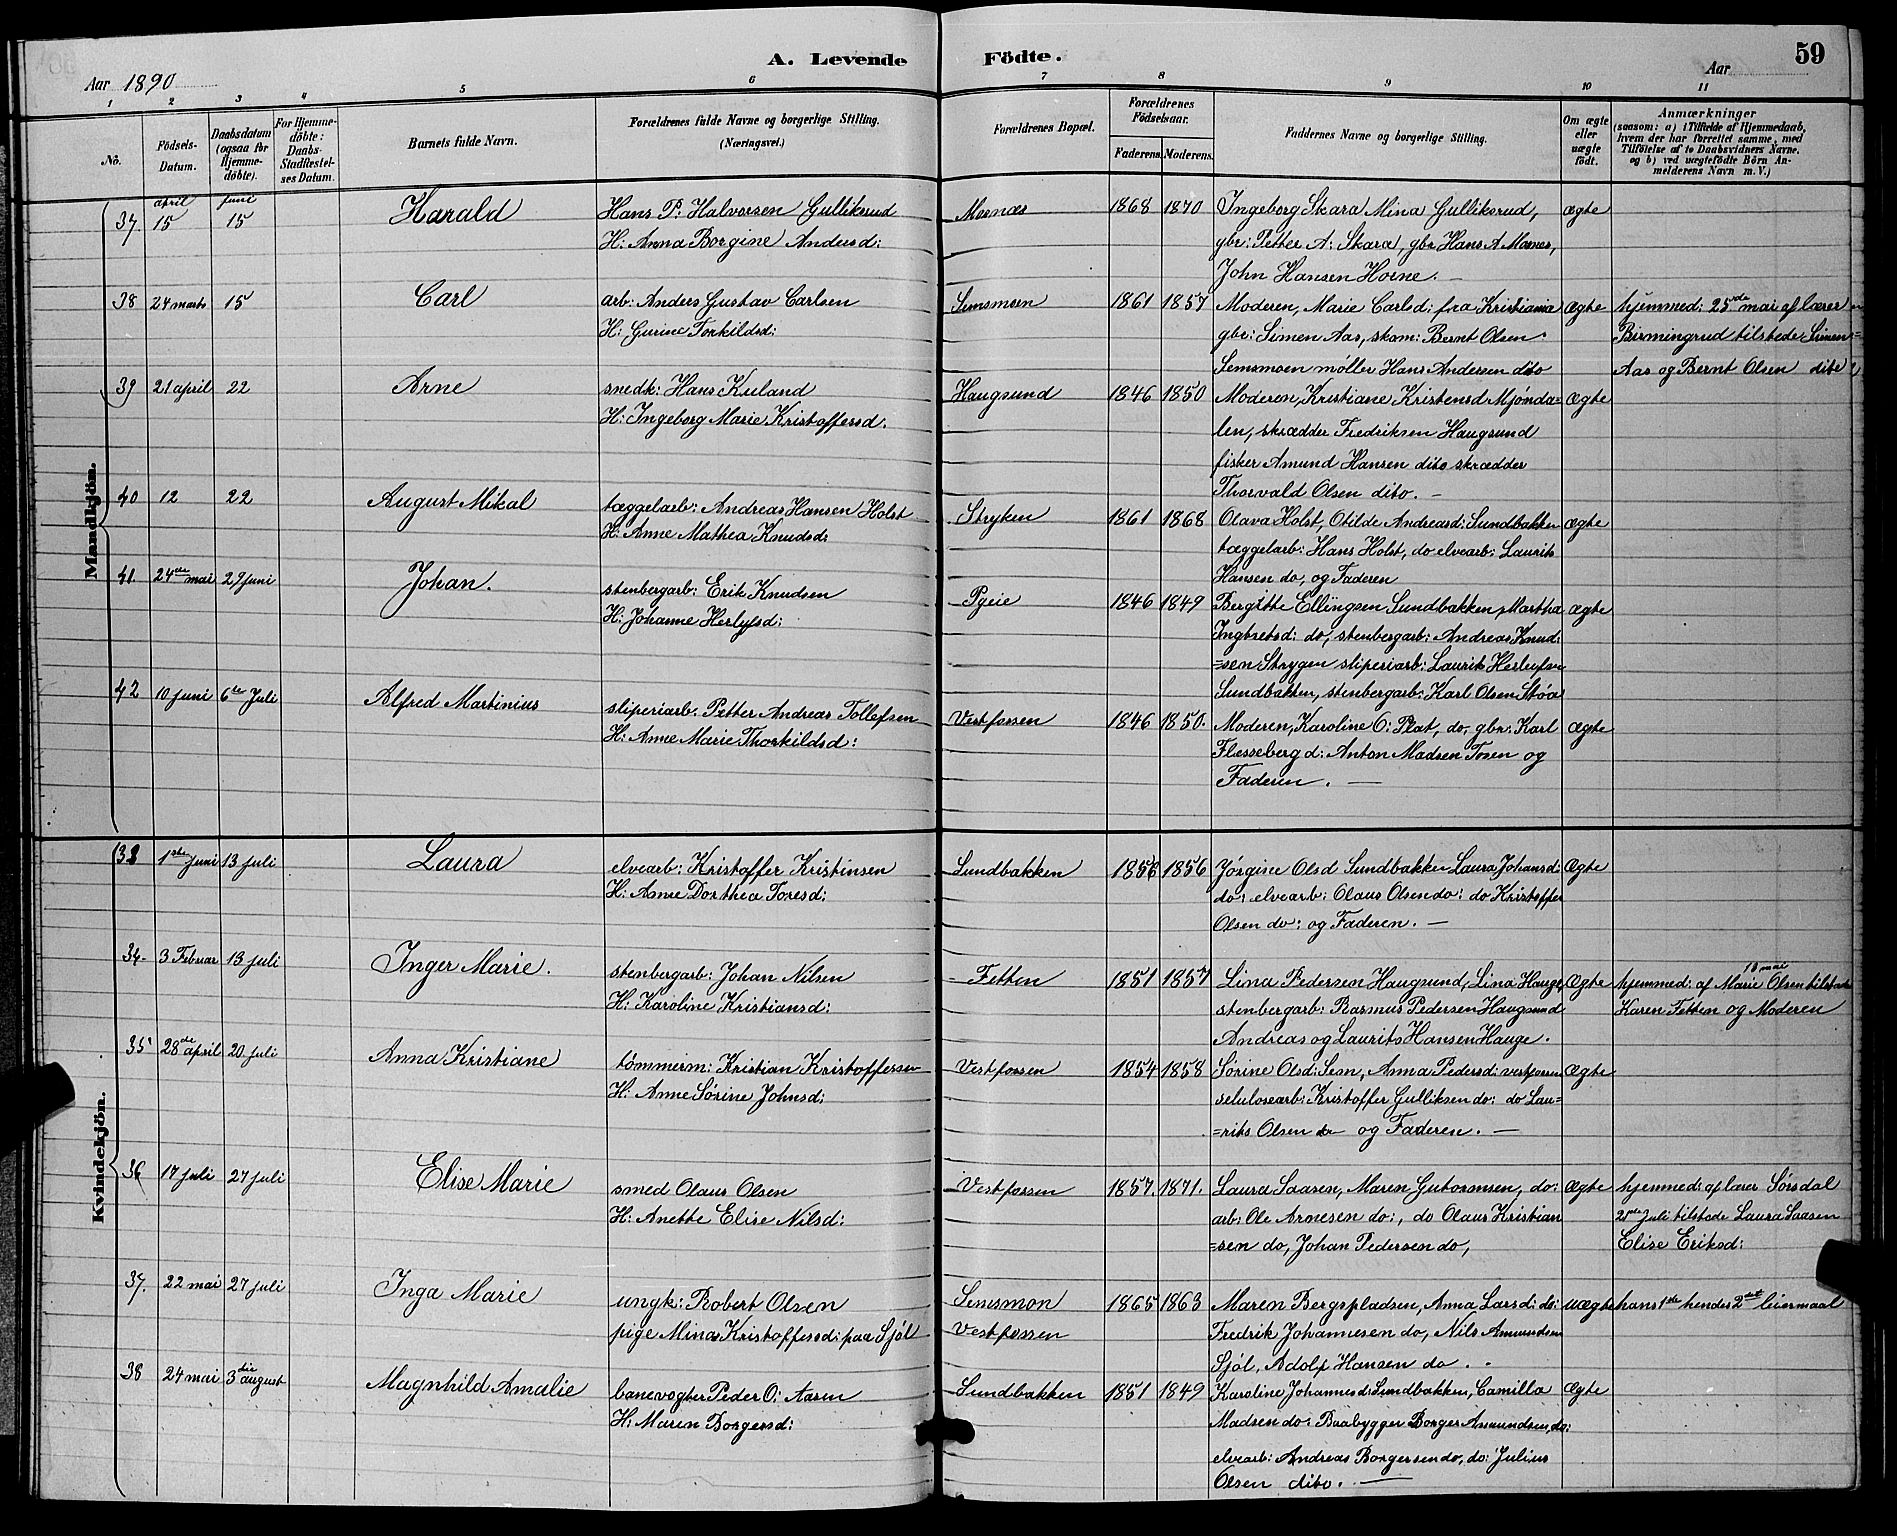 A. Levende Födte.
59
Aar 1890
Aar
1 2 3 4 5 6 7 8 9 10 11
No.
Födsels-Datum.
Daabsdatum (ogsaa for Hjemme-döbte).
For Hjemme-döbte: Daabs-Stadfestel-ses Datum.
Barnets fulde Navn.
Forældrenes fulde Navne og borgerlige Stilling. (Næringsvei.)
Forældrenes Bopæl.
Forældrenes Födselsaar.
Faderens. Moderens.
Faddernes Navne og borgerlige Stilling.
Om ægte eller uægte födt.
Anmærkninger (saasom: a) i Tilfælde af Hjemmedaab, hvem der har forrettet samme, med Tilföielse af to Daabsvidners Navne. og b) ved uægtefödte Börn An-melderens Navn m. V.)
Mandkjön.
37 april 15 juni 15 Harald Hans P. Halvorsen Gulliksrud Mosnæs 1868 1870 Ingeborg Skara Mina Gulliksrud, ægte
H: Anna Borgine Andersd: gbr: Petter A: Skara, gbr Hans A Mosnes,
John Hansen Horne. —
38 24 marts 15 Carl arb: Anders Gustav Carlsen Semsmoen 1861 1857 Moderen, Marie Carlsd: fra Kristiania ægte hjemmed: 25de mai af lærer
H: Gurine Torkildsd: gbr: Simen Aas, skom: Bernt Olsen Birmingrud tilstede Simen=
Semsmoen møller Hans Andersen dito Aas og Bernt Olsen dito
39 21 april 22 Arne snedk: Hans Kuland Haugsund 1846 1850 Moderen, Kristiane Kristensd Mjønda= ægte
H: Ingeborg Marie Kristoffersd. len, skrædder Fredriksen Haugsund
fisker Amund Hansen dito skrædder
Thorvald Olsen dito. —
40 12 22 August Mikal tæggelarb: Andreas Hansen Holst Stryken 1861 1868 Olava Holst, Otilde Andreasd: Sundbakken ægte
H: Anne Mathea Knudsd: tæggelarb: Hans Holst, do elvearb: Laurits
Hansen do, og Faderen
41. 24de mai 29 juni Johan. stenbergarb: Erik Knudsen Pgeie 1846 1849 Bergitte Ellingsen Sundbakken, Martha ægte
H: Johanne Herlufsd: Ingbretsd: do, stenbergarb: Andreas Knud:
=sen Strygen sliperiarb: Laurits Herlufsen
Sundbakken, stenbergarb: Karl Olsen Støa
42 10 juni 6te Juli Alfred Martinius sliperiarb. Petter Andreas Tollefsen Vestfossen 1846 1850. Moderen, Karoline O: Plat, do, gbr: Karl ægte
H: Anne Marie Thorkildsd: Flesseberg d: Anton Madsen Tosen og
Faderen. —
Kvindekjön.
33 1ste juni 13 juli Laura elvearb: Kristoffer Kristinsen Sundbakken 1856 1856 Jørgine Olsd Sundbakken Laura Johansd: Ægte
H: Anne Dorthea Toresd: do: elvearb: Olaus Olsen do: do Kristoffer
Olsen do: og Faderen. —
34. 3 Februar 13 juli Inger Marie. stenbergarb: Johan Nilsen Fetten 1851 1857 Lina Pedersen Haugsund, Lina Hauge, Ægte hjemmed: 18 mai af Marie Olsen tilstede
H: Karoline Kristiansd: stenbergarb: Rasmus Pedersen Haugsund Karen Fetten og Moderen
Andreas og Laurits Hansen Hauge.
35 28de april 20 juli Anna Kristiane tømmerm: Kristian Kristoffersen Vestfossen 1854 1858 Sørine Olsd: Sem, Anna Pedersd: vestfossen Ægte
H: Anne Sørine Johnsd: selulosearb: Kristoffer Gulliksen do: do Lau=
=rits Olsen do og Faderen. —
36 17 juli 27 juli Elise Marie smed Olaus Olsen Vestfossen 1857. 1871. Laura Saasen, Maren Gutormsen, do: Ægte hjemmed: af lærer Sørsdal
H: Anette Elise Nilsd: arb: Ole Arnesen do:, do Olaus Kristian 21de juli tilstede Laura Saasen
=sen do, Johan Pedersen do, Elise Eriksd:
37. 22 mai 27 juli Inga Marie ungk: Robert Olsen Semsmon 1865 1863 Maren Bergspladsen, Anna Larsd: do: uægte hans 1ste hendes 2det leiermaal
pige Mina Kristoffersd: paa Sjøl Vestfossen Fredrik Johannesen do, Nils Amundsen
Sjøl, Adolf Hansen do.
38 24 mai 3die august Magnhild Amalie banevogter Peder O: Aaren Sundbakken 1851 1849 Karoline Johannesd: Sundbakken, Camilla Ægte
H: Maren Borgersd: Madsen do: Baabygger Borger Amundsen, do:
elvearb: Andreas Borgersen do, do: Julius
Olsen dito. —